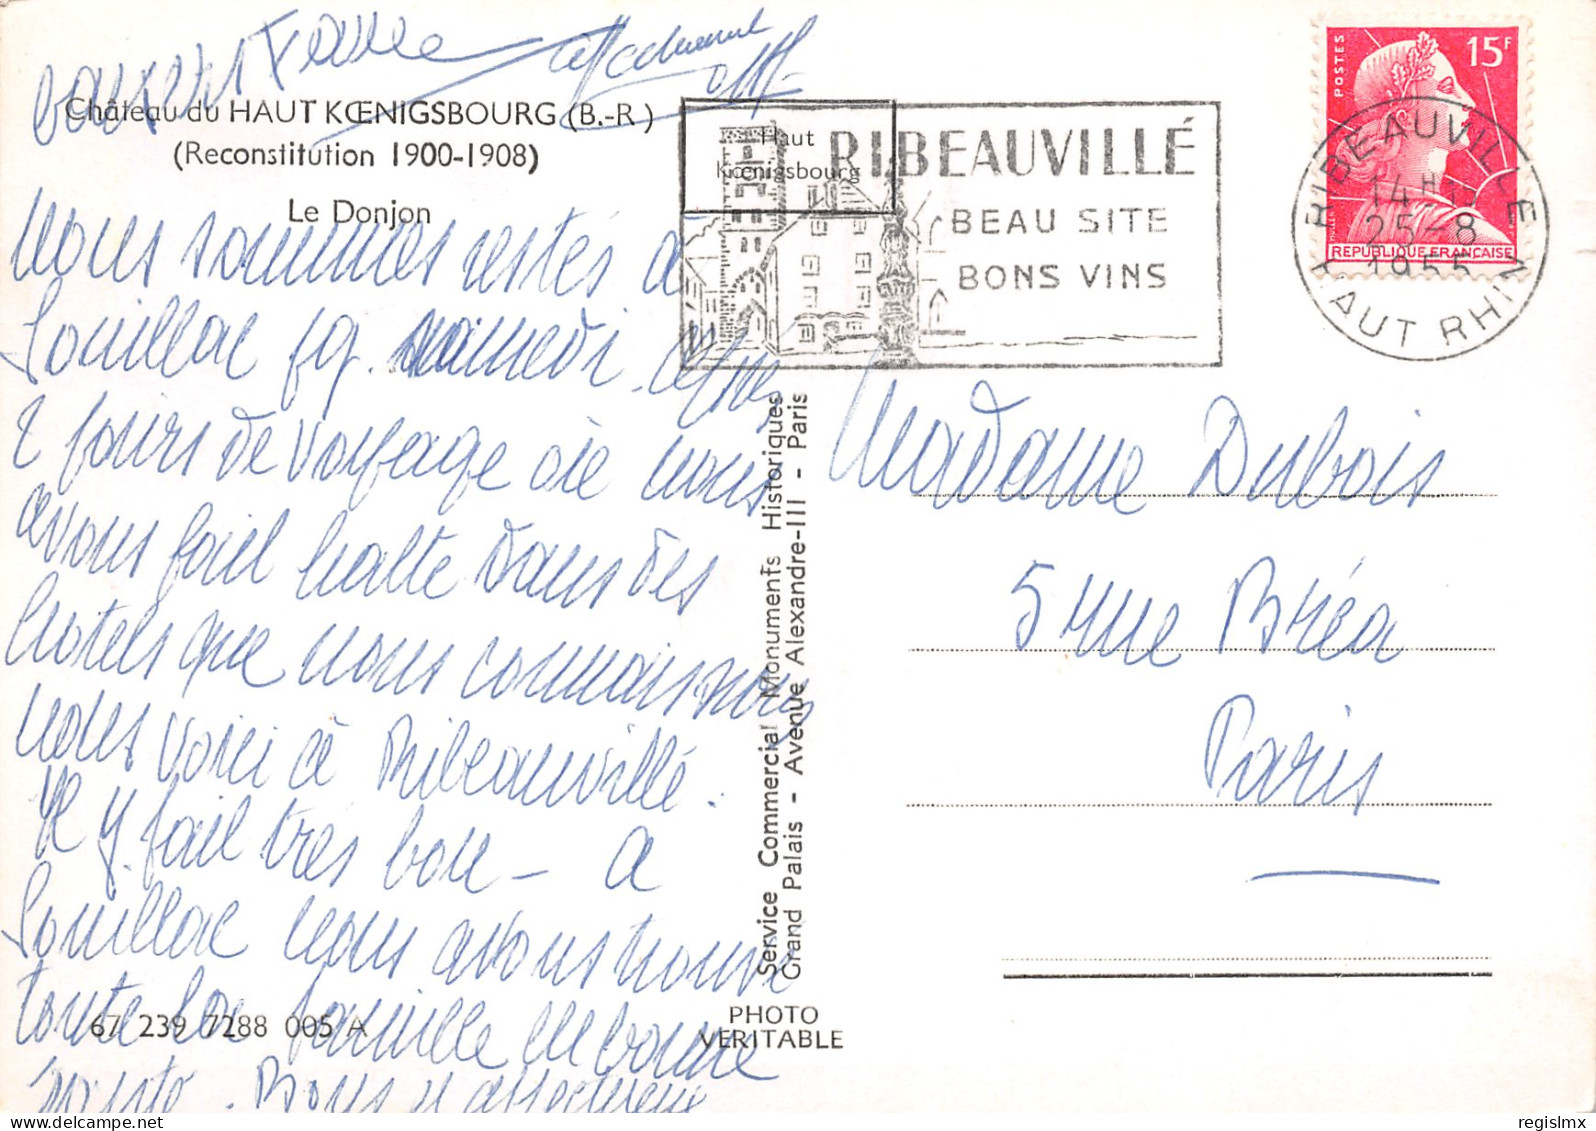 Château du HAUT KŒNIGSBOURG (B.-R.)
(Reconstitution 1900-1908)
Le Donjon
nous sommes restés à
Souillac jq. samedi. après
2 jours de voyage où nous
avons fait halte dans des
hotels que nous connaissons
nous voici à Ribeauvillé.
Il y fait très bon - à
Souillac nous avons trouvé
toute la famille en bonne
santé. Bons
67 239 7288 005 A
Haut
Kœnigsbourg
RIBEAUVILLÉ
BEAU SITE
BONS VINS
15F
POSTES
MULLER
REPUBLIQUE FRANÇAISE
RIBEAUVILLE
14H
25-8
1955
HAUT RHIN
Service Commercial Monuments Historiques
Grand Palais - Avenue Alexandre-III - Paris
PHOTO
VERITABLE
Madame Dubois
5 rue Bréa
Paris
regislmx
delcampe.net